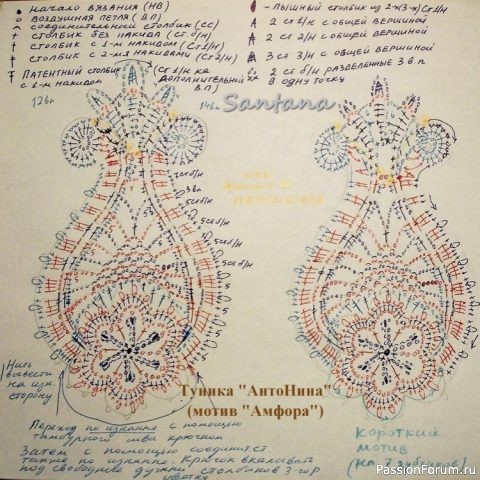 • НАЧАЛО ВЯЗАНИЯ (НВ)
ВОЗДУШНАЯ ПЕТЛЯ (ВП)
СОЕДИНИТЕЛЬНЫЙ СТОЛБИК (СС)
СТОЛБИК БЕЗ НАКИДА (СТ б/н)
СТОЛБИК С 1-М НАКИДОМ (СТ1/Н)
СТОЛБИК С 2-МЯ НАКИДАМИ (СТ2/Н)
ПАТЕНТНЫЙ СТОЛБИК
С 1-М НАКИДОМ
СТ1/Н НА
ДОПОЛНИТЕЛЬНОЙ
ВП
ПЫШНЫЙ СТОЛБИК ИЗ 2-х(3-х) СТ1/Н
2 СТ 1/Н С ОБЩЕЙ ВЕРШИНОЙ
2 СТ 2/Н С ОБЩЕЙ ВЕРШИНОЙ
3 СТ 3/Н С ОБЩЕЙ ВЕРШИНОЙ
2 СТ б/Н РАЗДЕЛЕННЫЕ 3 ВП
В ОДНУ ТОЧКУ
12вп
14вп
Santana
3вп
5стб/н
5стб/н
5стб/н
5стб/н
5
5
5
Нить
вывести
на изн.
сторону
Туника "АнтоНина"
(мотив "Амфора")
Переход по изнанке с помощью
тамбурного шва крючком
Затем с помощью соединит.ст
также по изнанке. Крючок вкалывать
под свободные дужки столбиков 3-го р
цветка
короткий
мотив
PassionForum.ru